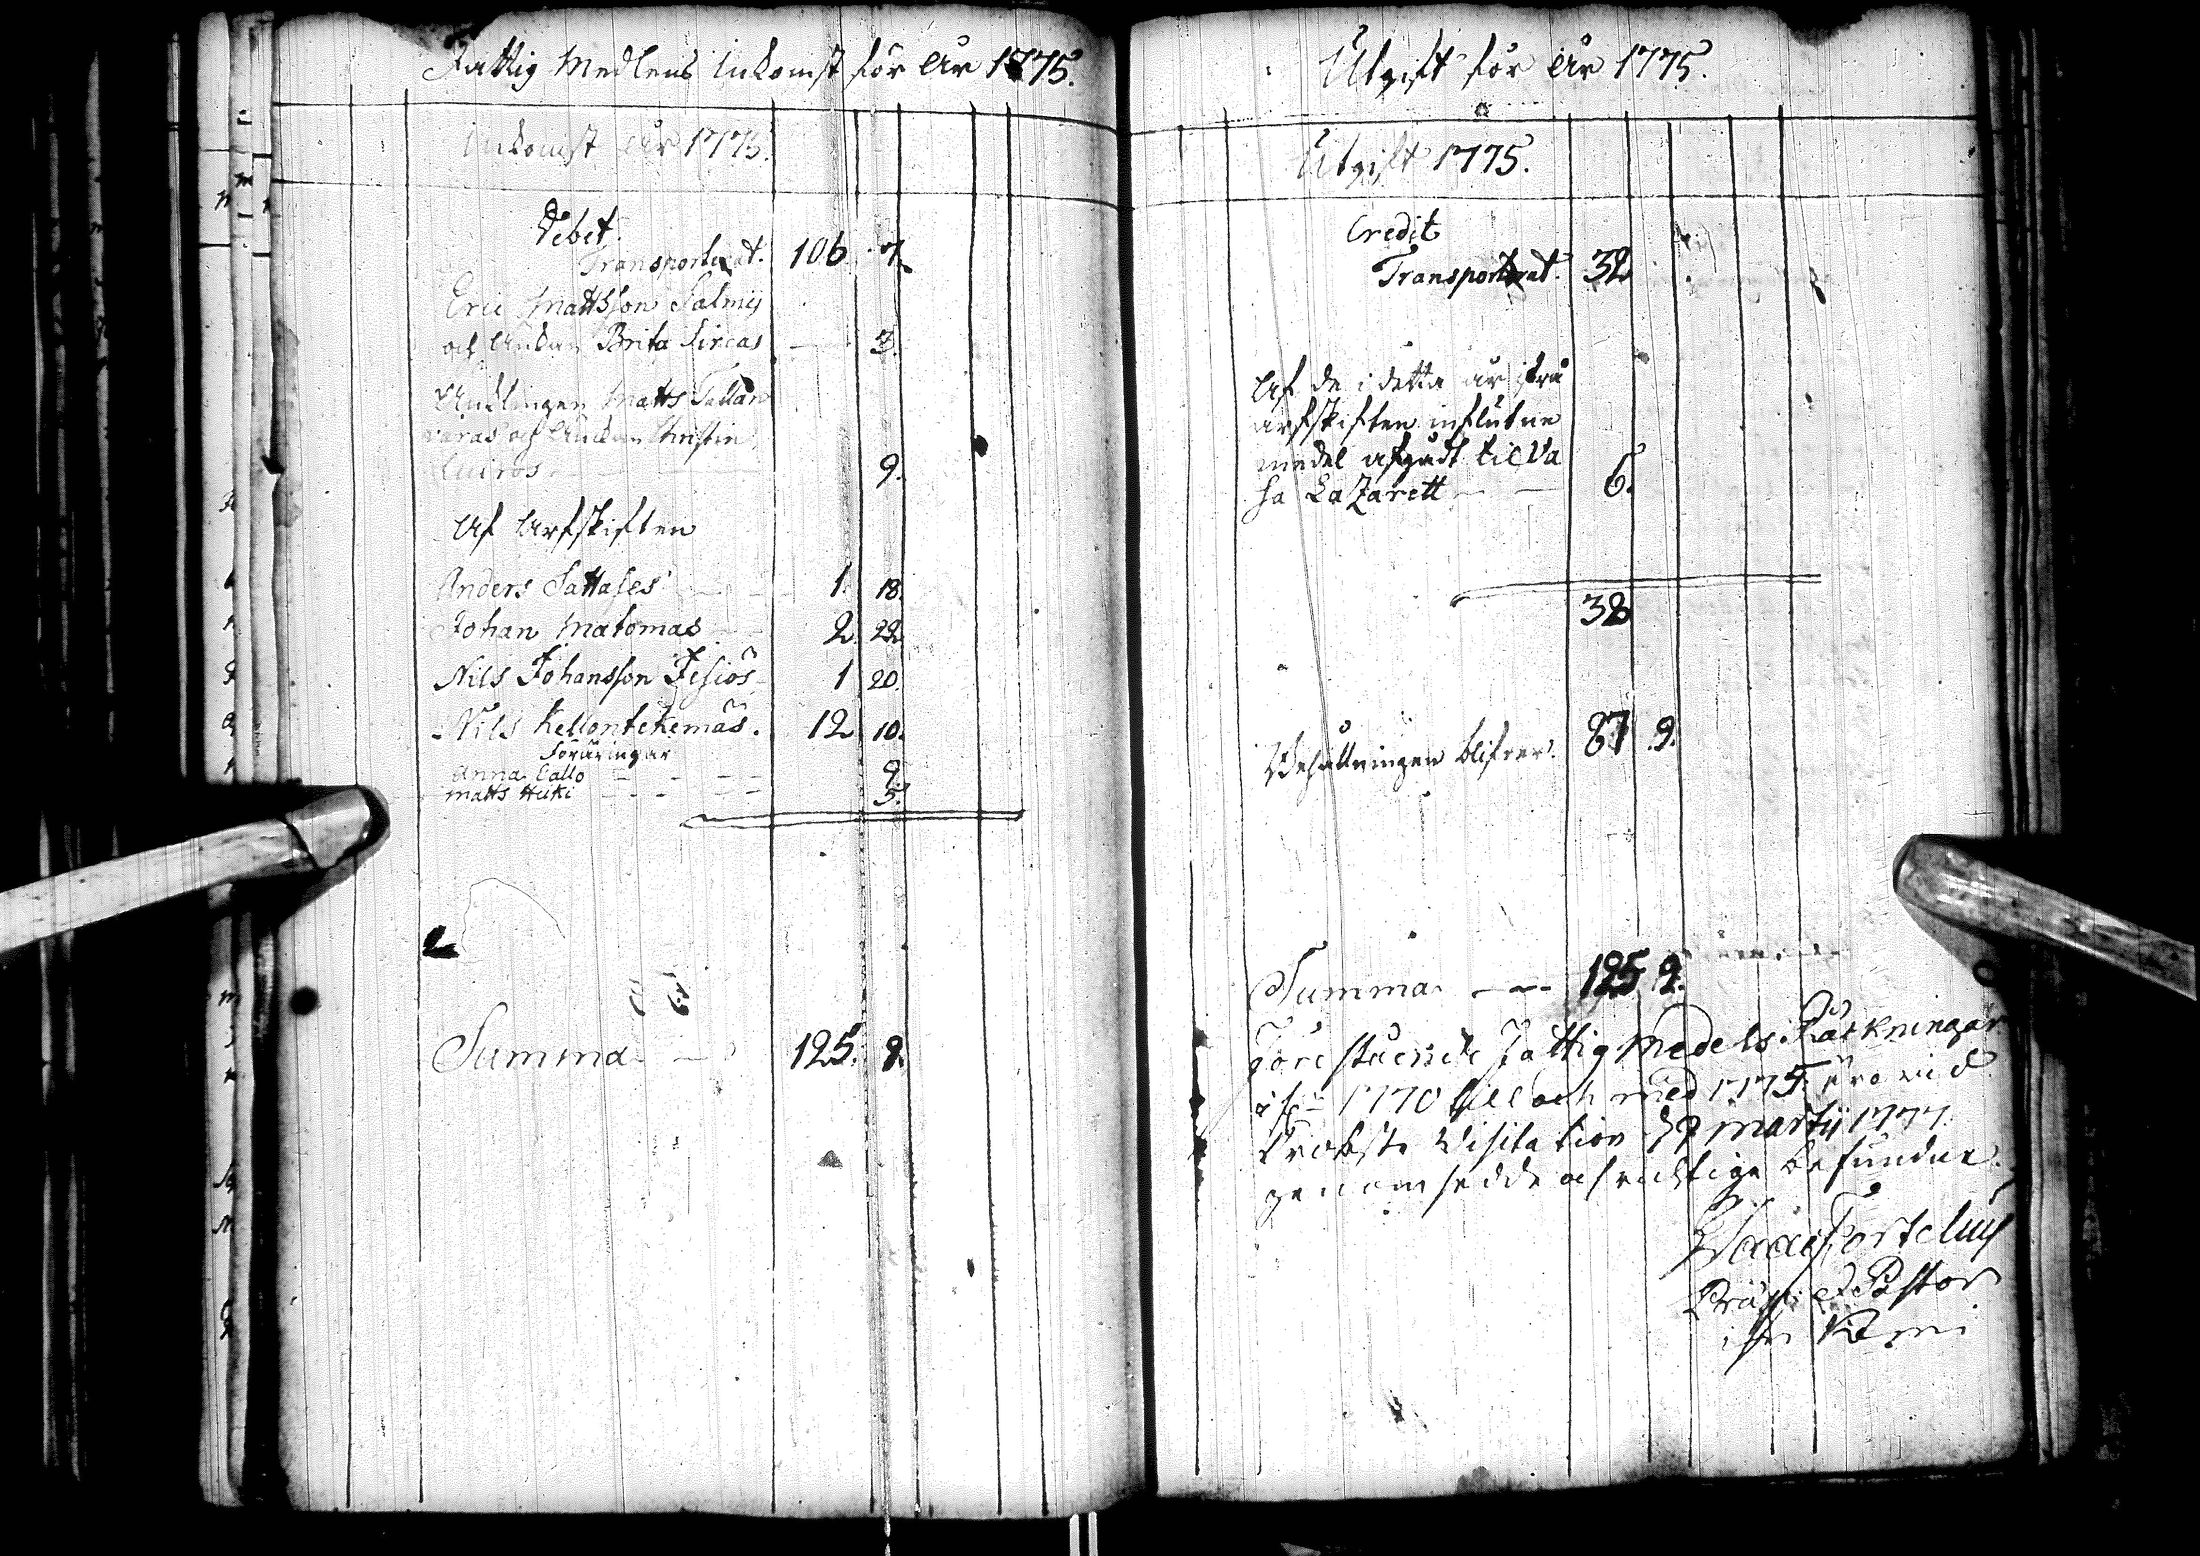 Fattig Medlens Inkomst för År 1775.
Inkomst År 1775.
Debet.
Transporterat. 106. 7.
Eric Mattsson Salmij
och Enkan Brita Sircas - 3.
Ynklingen Matts Tallan
varas och Enkan Christin
Luiros - 9.
Af Arfskiften
Anders Sattajes - - 1. 18.
Johan Matomas - - 2. 22.
Nils Johansson Jesiös 1 20.
Nils Kellontekemäs. 12 10.
Föräringar
Anna Callo - - - - 9
Matts Huki - - - - 5.
Summa - 125. 9.
Utgift för År 1775.
Utgift 1775.
Credit
Transporterat. 32
Af de i detta år ifrå
arfskiften influtne
medel afgådt til Va
sa Lazarett - - 6.
38
Behållningen blifver. 87 9.
Summa - - - 125 9.
Förestående Fattig Medels Räkningar
ifrån 1770 till och med 1775 äro vid
Probste Visitation d 9 Martij 1777
genomsedde och richtige befundne.
Prost et Pastor
i Kemi